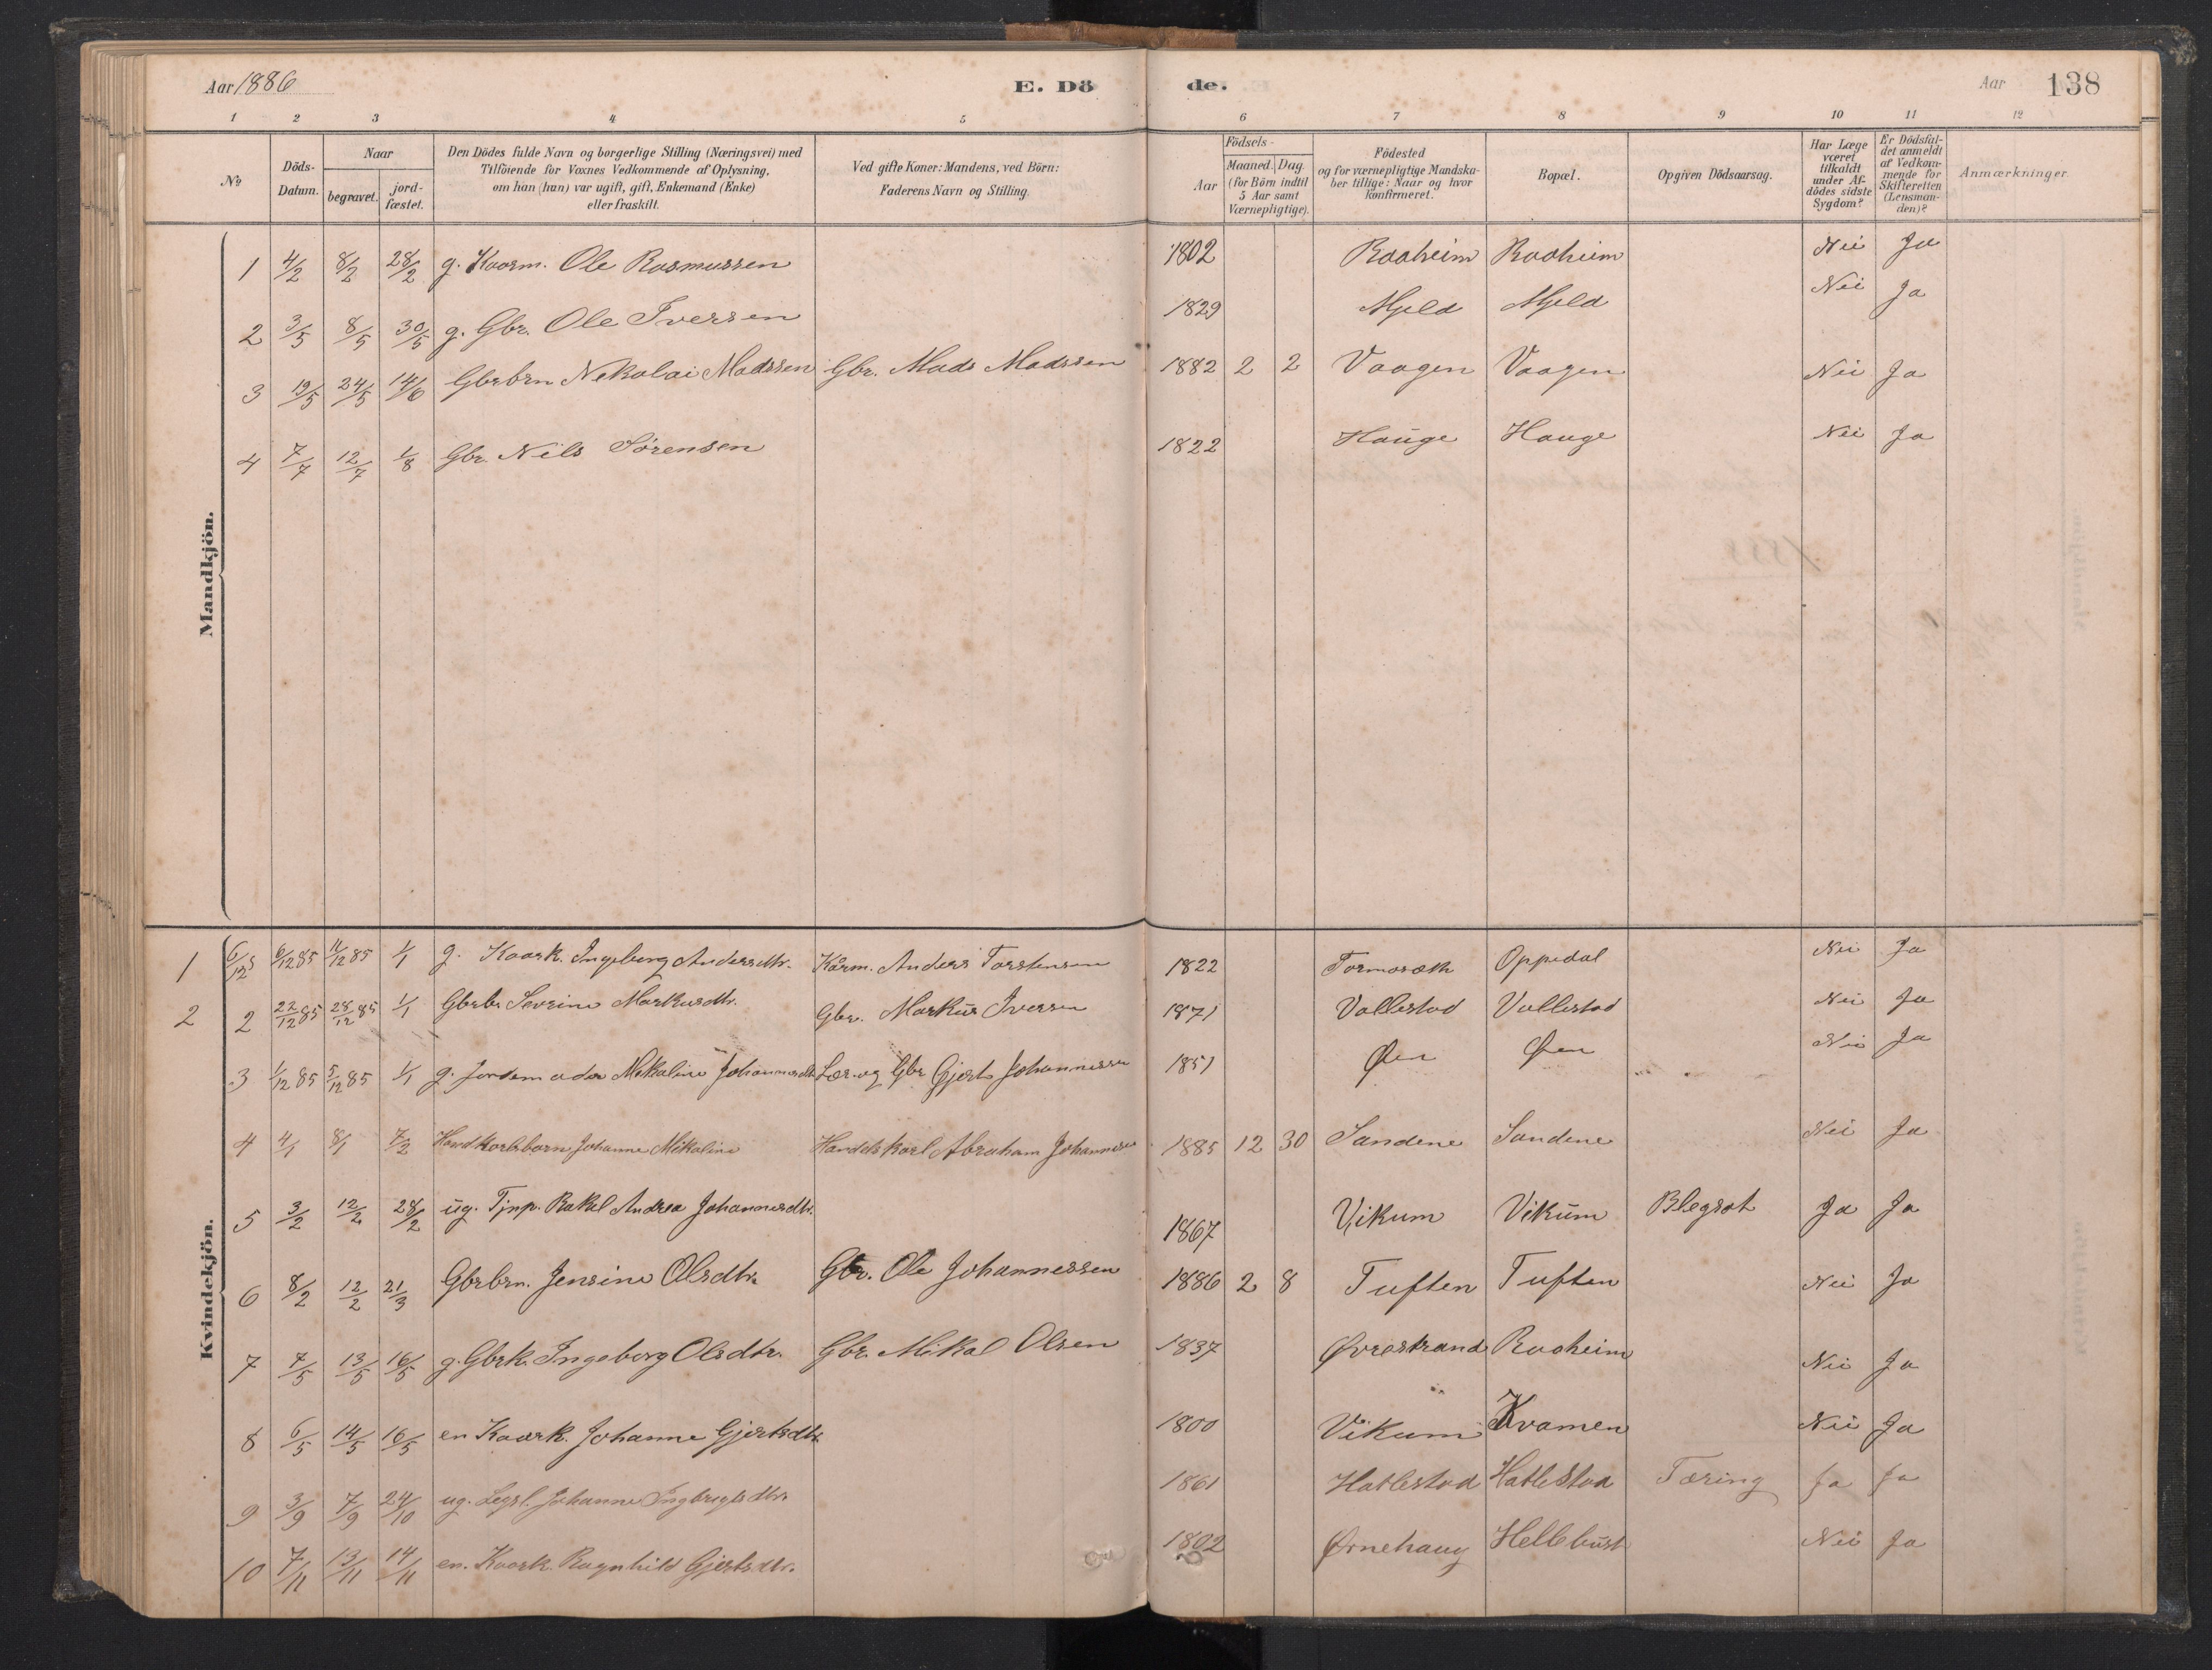 Aar 1886 E. Dö de. Aar 138
1 2 3 4 5 6 7 8 9 10 11 12
No Döds-Datum. Naar begravet. jord-fæstet. Den Dödes fulde Navn og borgerlige Stilling (Næringsvei) med Tilföiende for Voxnes Vedkommende af Oplysning, om han (hun) var ugift, gift, Enkemand (Enke) eller fraskilt. Ved gifte Koner: Mandens, ved Börn: Faderens Navn og Stilling. Födsels- Aar Maaned. Dag. (for Börn indtil 5 Aar samt Værnepligtige). Födested og for værnepligtige Mandskaber tillige: Naar og hvor konfirmeret. Bopæl. Opgiven Dödsaarsag. Har Læge været tilkaldt under Afdödes sidste Sygdom? Er Dödsfaldet anmeldt af Vedkommende for Skifteretten (Lensmanden)? Anmærkninger.
Mandkjön.
1 4/2 8/2 28/2 g. Kaarm. Ole Rasmussen 1802 Raaheim Raaheim Nei Ja
2 3/5 8/5 30/5 g. Gbr. Ole Iversen 1829 Mjeld Mjeld Nei Ja
3 19/5 24/5 14/6 Gbrbrn Nikolai Madssen Gbr. Mads Madssen 1882 2 2 Vaagen Vaagen Nei Ja
4 7/7 12/7 1/8 Gbr. Nils Sörensen 1822 Hauge Hauge Nei Ja
Kvindekjön.
1 6/12 85 11/12 85 1/1 g. Kaark. Ingeborg Andersdtr. Kårm. Anders Torstensen 1822 Oppedal Nei Ja
2 2 22/12 85 28/12 85 1/1 Gbrb. Severine Markusdtr. Gbr. Markus Iversen 1871 Vallestad Vallestad Nei Ja
3 1/12 85 5/12 85 1/1 g. Jordemoder Mikaline Johannesdtr. Lær. og Gbr Gjert Johannessen 1851 Øen Øen Nei Ja
4 4/1 8/1 7/2 Handkarlsbarn Johanne Mikaline Handelskarl Abraham Johannesen 1885 12 30 Sandene Sandene Nei Ja
5 3/2 12/2 28/2 ug. Tjnp. Rakel Andrea Johannesdtr. 1867 Vikum Vikum Blegsot Ja Ja
6 8/2 12/2 21/3 Gbrbrn. Jensine Olsdtr. Gbr. Ole Johannessen 1886 2 8 Tuften Tuften Nei Ja
7 7/5 13/5 16/5 g. Gbrk. Ingeborg Olsdtr. Gbr. Mikal Olsen 1837 Øvrestrand Raaheim Nei Ja
8 6/5 14/5 16/5 en Kaark. Johanne Gjertsdtr. 1800 Vikum Kvamen Nei Ja
9 3/9 7/9 24/10 ug. Legsl. Johanne Ingbrigtsdtr. 1861 Hatlestad Hatlestad Tæring Ja Ja
10 7/11 13/11 14/11 en. Kaark. Ragnhild Gjertsdtr. 1802 Ørnehaug Hellebust Nei Ja